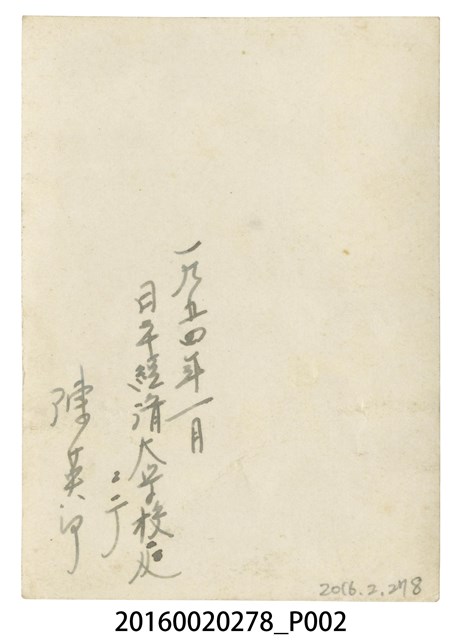 一九五四年一月
日本經濟大学校
ニテ
陳英
2016.2.278
20160020278_P002